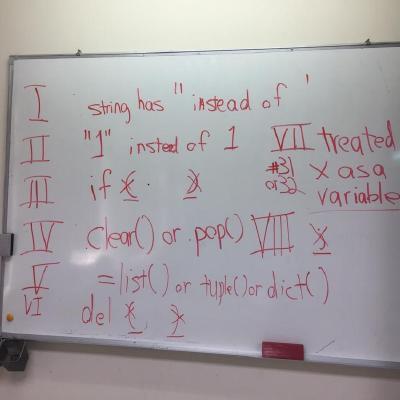 I string has " instead of '
II "1" instead of 1
III if
IV clear() or .pop()
V = list() or tuple() or dict()
VI del
VII treated
#31 or 32 X as a
variable
VIII